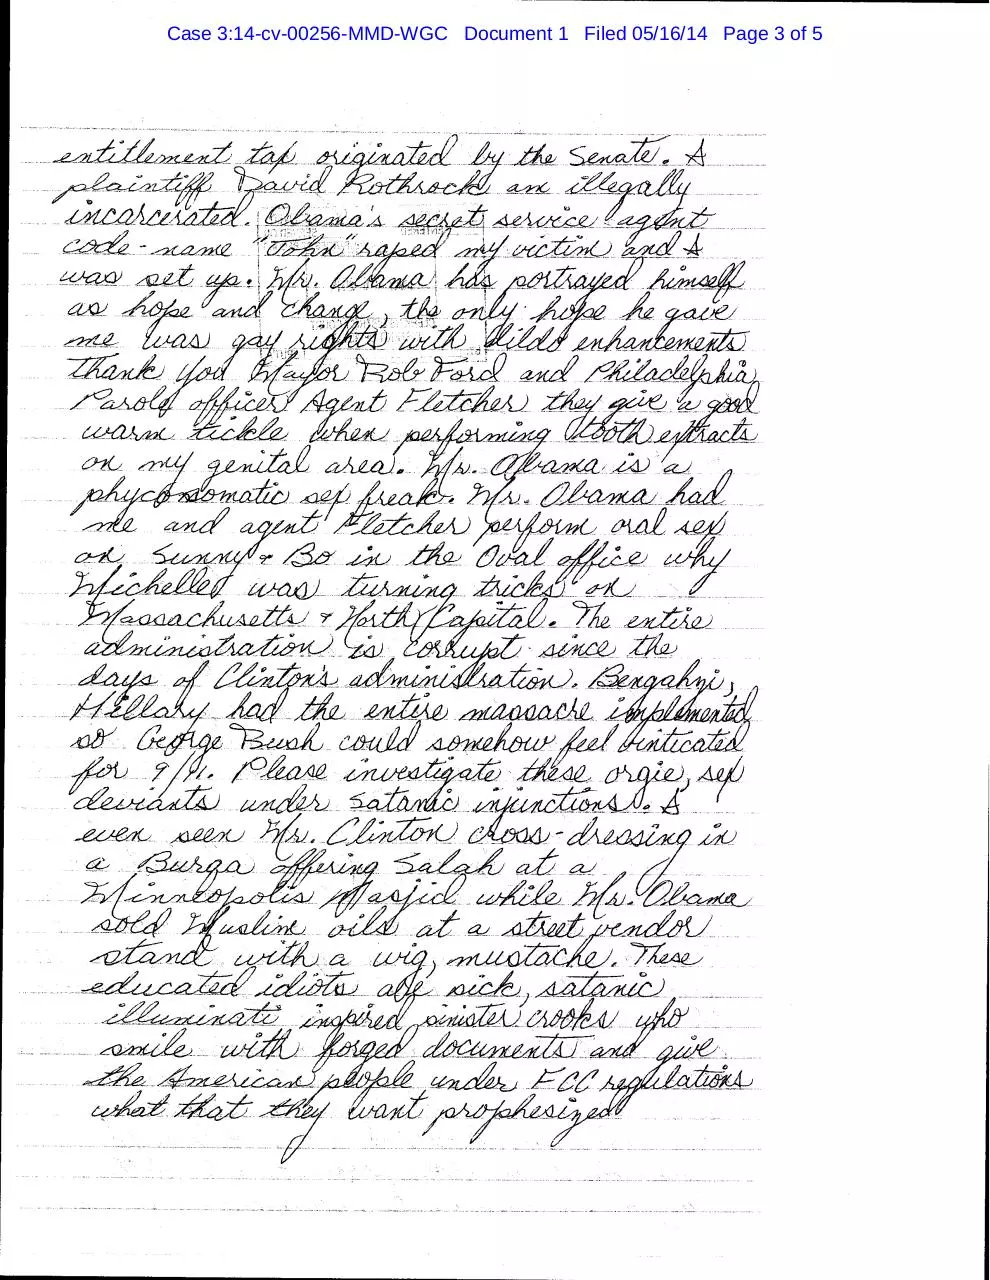 Case 3:14-cv-00256-MMD-WGC Document 1 Filed 05/16/14 Page 3 of 5
entitlement tax originated by the Senate. I
plaintiff David Rothrock am illegally
incarcerated. Obama's secret service agent
code-name "John" raped my victim and I
was set up. Mr. Obama has portrayed himself
as hope and change, the only hope he gave
me was gay rights with dildo enhancements
Thank you Mayor Rob Ford and Philadelphia
Parole officer Agent Fletcher they give a good
warm tickle when performing tooth extracts
on my genital area. Mr. Obama is a
phycosomatic sex freak. Mr. Obama had
me and agent Fletcher perform oral sex
on Sunny & Bo in the Oval office why
Michelle was turning tricks on
Massachusetts & North Capital. The entire
administration is corrupt since the
days of Clinton's administration. Bengahzi,
Hillary had the entire massacre implemented
so George Bush could somehow feel vinticated
for 9/11. Please investigate these orgie, sex
deviants under satanic injunctions. I
even seen Mr. Clinton cross-dressing in
a Burqa offering Salah at a
Minneopolis Masjid while Mr. Obama
sold Muslim oils at a street vendor
stand with a wig, mustache. These
educated idiots are sick, satanic
illuminati inspired sinister crooks who
smile with forged documents and give
the American people under FCC regulations
what that they want prophesized